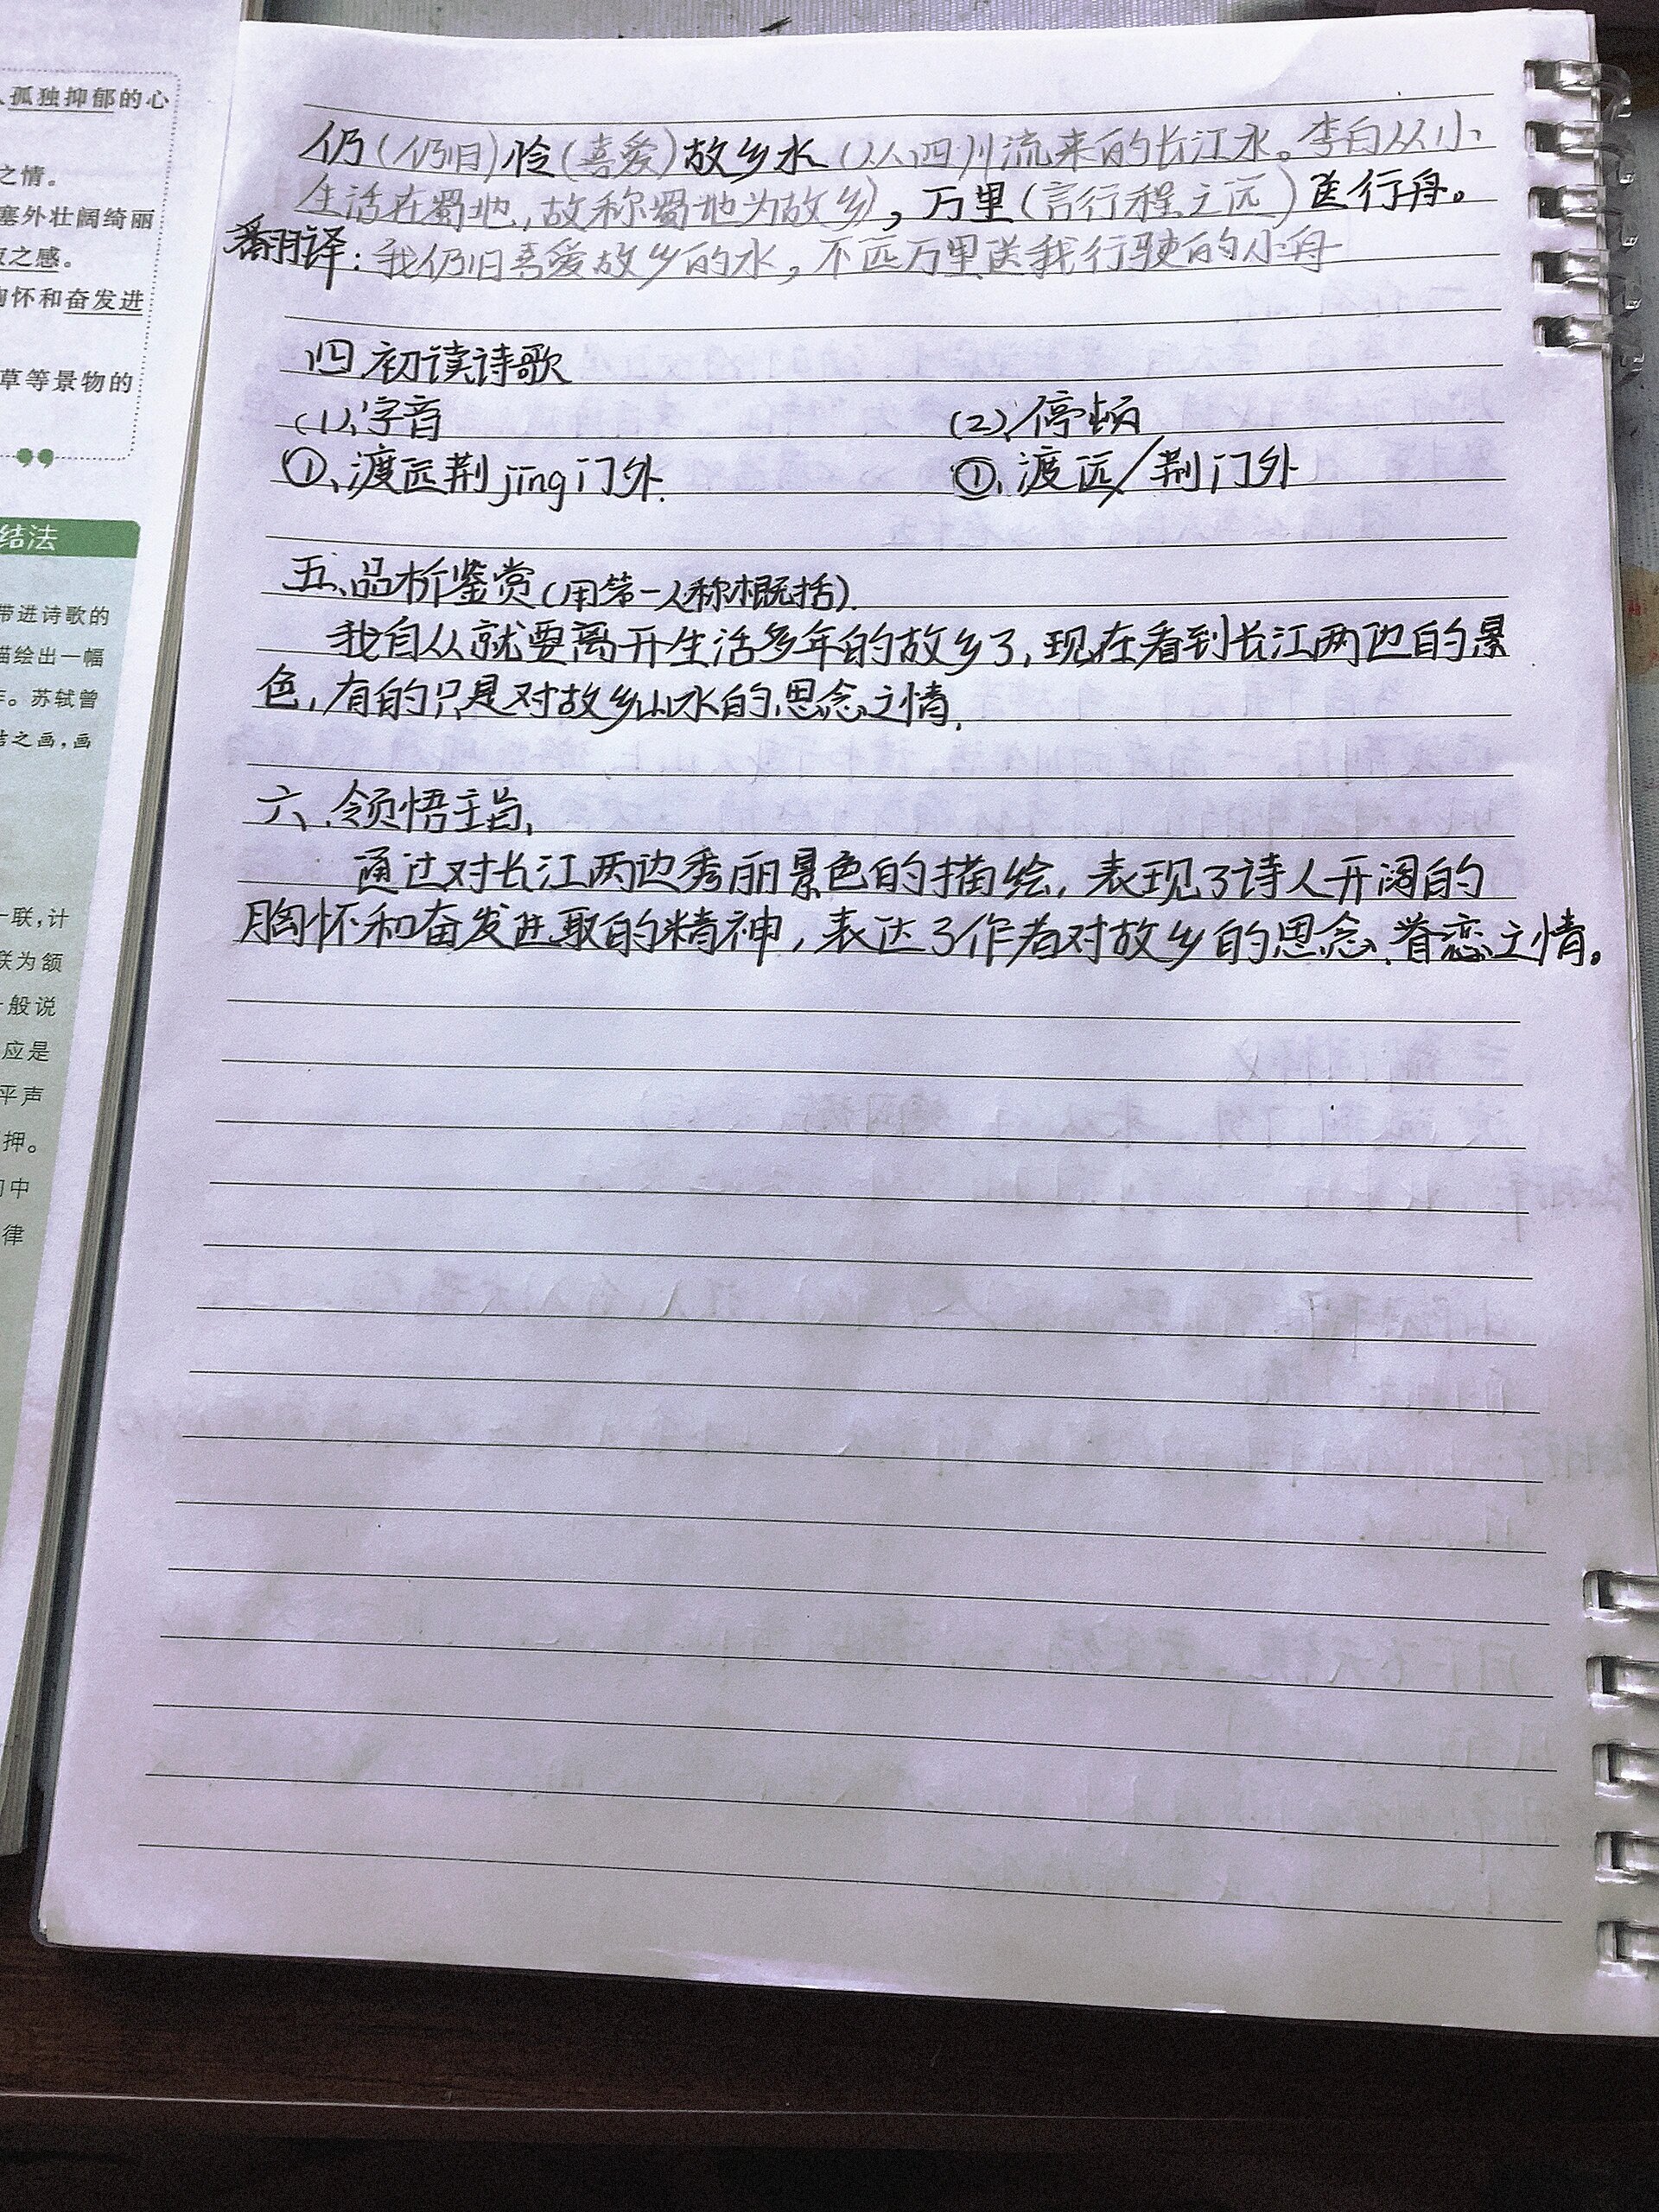 、孤独抑郁的心
之情。
塞外壮阔绮丽
之感。
怀和奋发进
草等景物的
”
结法
带进诗歌的
描绘出一幅
。苏轼曾
之画，画
一联，计
联为颔
一般说
应是
平声
押。
中
律
仍（仍旧）怜（喜爱）故乡水（从四川流来的长江水。李白从小
生活在蜀地，故称蜀地为故乡），万里（言行程之远）送行舟。
翻译：我仍旧喜爱故乡的水，不远万里送我行驶的小舟
四.初读诗歌
(1)、字音
(2)、停顿
①、渡远荆jīng门外.
①、渡远/荆门外
五、品析鉴赏(用第一人称概括).
我自从就要离开生活多年的故乡了,现在看到长江两边的景
色,有的只是对故乡山水的思念之情.
六、领悟主旨、
通过对长江两边秀丽景色的描绘,表现了诗人开阔的
胸怀和奋发进取的精神,表达了作者对故乡的思念、眷恋之情。